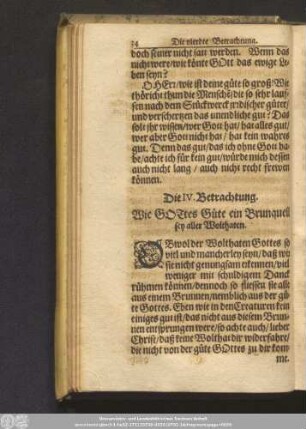 34 Die vierdte Betrachtung.
doch seiner nicht satt werden. Wenn das
nicht were / wie könte GOtt das ewige Le-
ben seyn?
O HErr / wie ist deine güte so groß! Wie
thöricht thun die Menschē / die so sehr lauf-
fen nach dem Stückwerck irrdischer güter /
und verscherzen das unendliche gut? Das
solt ihr wissen / wer Gott hat / hat alles gut /
wer aber Gott nicht hat / hat kein wahres
gut. Denn das gut / das ich ohne Gott ha-
be / achte ich für kein gut / würde mich dessen
auch nicht lang / auch nicht recht frewen
können.
Die IV. Betrachtung.
Wie GOttes Güte ein Brunquell
sey aller Wolthaten.
OBwol der Wolthaten Gottes so
viel und mancherley seyn / daß wir
sie nicht genungsam erkennen / viel
weniger mit schuldigem Danck
rühmen können / dennoch so fliessen sie alle
aus einem Brunnen / nemblich aus der gü-
te Gottes. Eben wie in den Creaturen kein
einiges gut ist / das nicht aus diesem Brun-
nen entsprungen were / so achte auch / lieber
Christ / daß keine Wolthat dir widerfahre /
die nicht von der güte GOttes zu dir kom-
me.